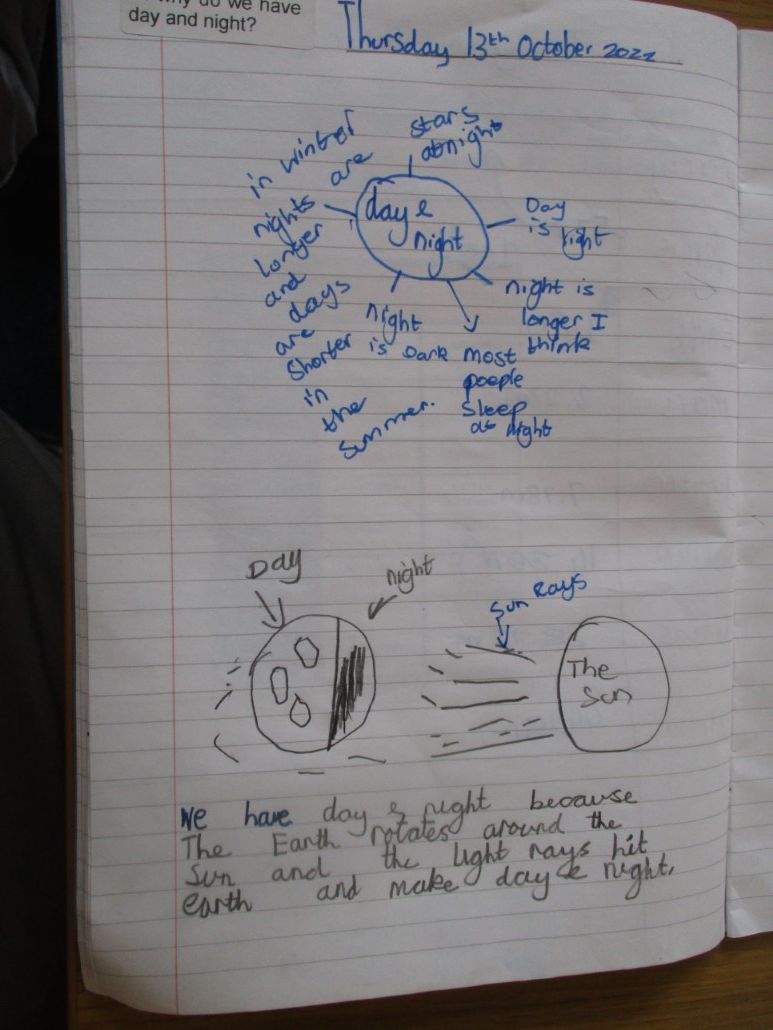 why do we have
day and night?
Thursday 13th October 2022
stars
at night
in winter
nights are
longer
and
days
are
shorter
in
the
summer.
day &
night
Day
is light
night is
longer I
think
night
is Dark
most
poeple
sleep
at night
Day
night
Sun Rays
The
Sun
We have day & night because
The Earth rotates around the
Sun and the light rays hit
earth and make day & night.